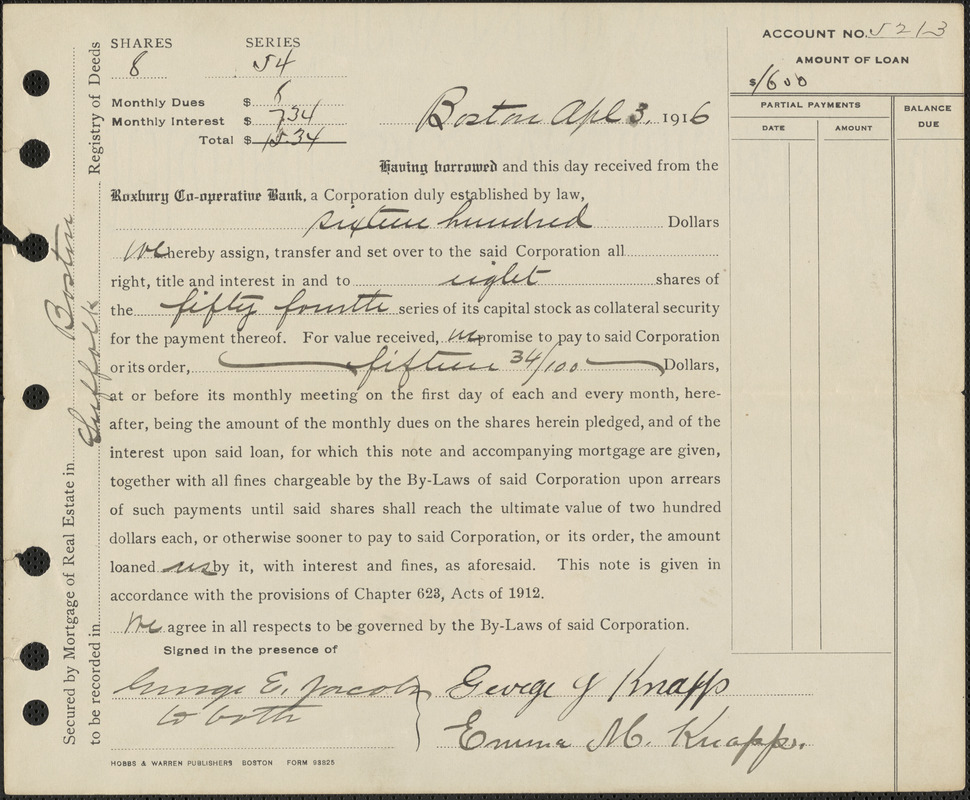 SHARES SERIES
8 54
Monthly Dues $ 8
Monthly Interest $ 7.34
Total $ 15.34
Boston Apl 3, 1916
ACCOUNT NO. 5213
AMOUNT OF LOAN
$1600
PARTIAL PAYMENTS BALANCE DUE
DATE AMOUNT
Having borrowed and this day received from the
Roxbury Co-operative Bank, a Corporation duly established by law,
sixteen hundred Dollars
We hereby assign, transfer and set over to the said Corporation all
right, title and interest in and to eight shares of
the fifty fourth series of its capital stock as collateral security
for the payment thereof. For value received, we promise to pay to said Corporation
or its order, fifteen 34/100 Dollars,
at or before its monthly meeting on the first day of each and every month, here-
after, being the amount of the monthly dues on the shares herein pledged, and of the
interest upon said loan, for which this note and accompanying mortgage are given,
together with all fines chargeable by the By-Laws of said Corporation upon arrears
of such payments until said shares shall reach the ultimate value of two hundred
dollars each, or otherwise sooner to pay to said Corporation, or its order, the amount
loaned us by it, with interest and fines, as aforesaid. This note is given in
accordance with the provisions of Chapter 623, Acts of 1912.
We agree in all respects to be governed by the By-Laws of said Corporation.
Signed in the presence of
George E. Jacobs George J Knapp
to both Emma M. Knapp.
HOBBS & WARREN PUBLISHERS BOSTON FORM 93825
Secured by Mortgage of Real Estate in Boston
to be recorded in Suffolk Registry of Deeds